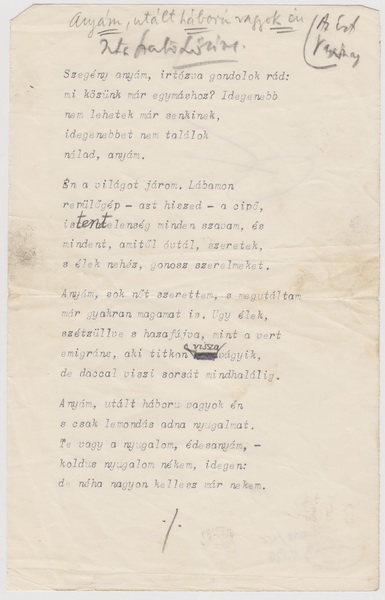 Anyám, utált háború vagyok én
Irta Szabó Lőrinc.
Az Est
Szegény anyám, irtózva gondolok rád:
mi közünk már egymáshoz? Idegenebb
nem lehetek már senkinek,
idegenebbet nem találok
nálad, anyám.
Én a világot járom. Lábamon
repülőgép - azt hiszed - a cipő,
istentelenség minden szavam, és
mindent, amitől óvtál, szeretek,
s élek nehéz, gonosz szerelmeket.
Anyám, sok nőt szerettem, s megutáltam
már gyakran magamat is. Ugy élek,
szétzüllve s hazafájva, mint a vert
emigráns, aki titkon vissza vágyik,
de daccal viszi sorsát mindhalálig.
Anyám, utált háboru vagyok én
s csak lemondás adna nyugalmat.
Te vagy a nyugalom, édesanyám, -
koldus nyugalom nékem, idegen:
de néha nagyon kellesz már nekem.
./.